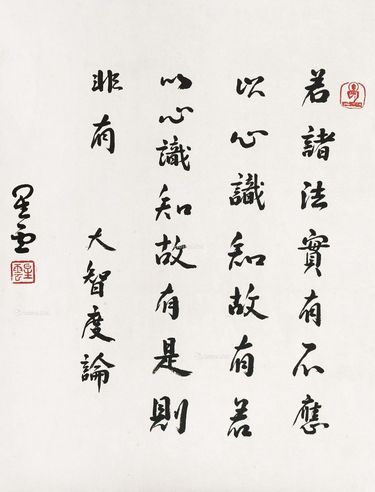 若諸法實有不應
以心識知故有若
以心識知故有是則
非有　大智度論
星雲
星雲